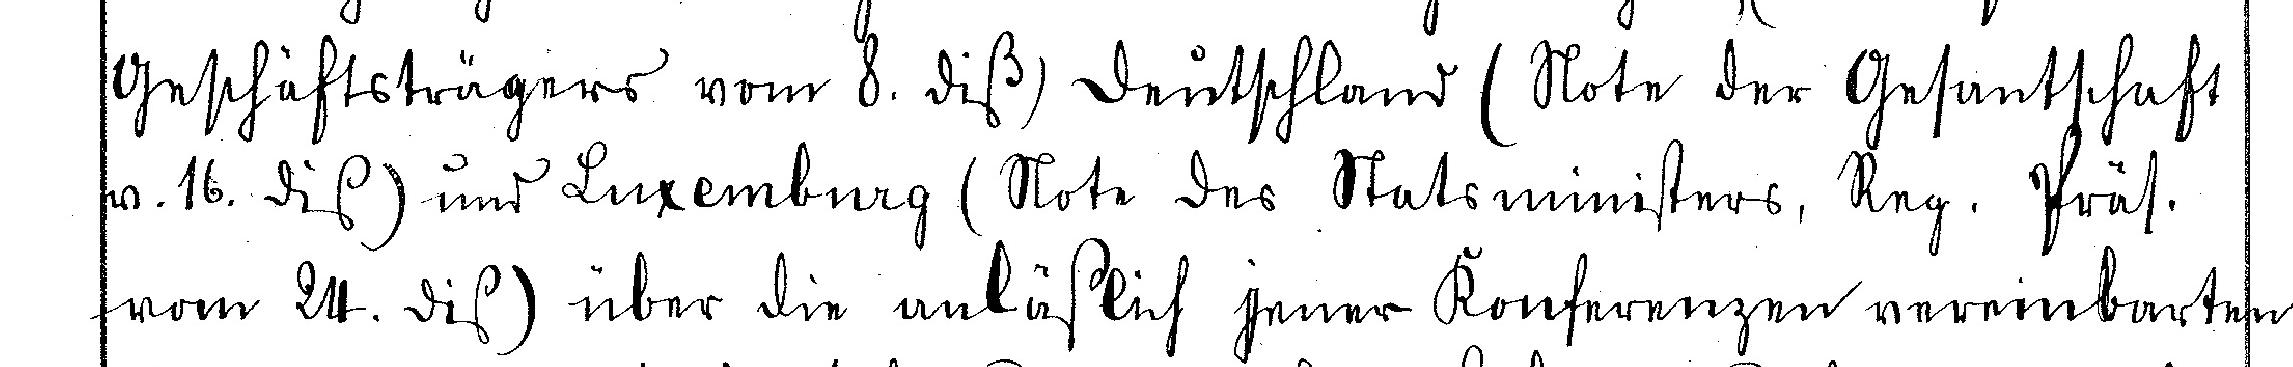 Geschäftsträgers vom 8. diß) Deutschland (Note der Gesantschaft
v. 16. diß) und Luxemburg (Note des Statsministers, Reg. Präs.
vom 24. diß) über die anläßlich jener Konferenzen vereinbarten